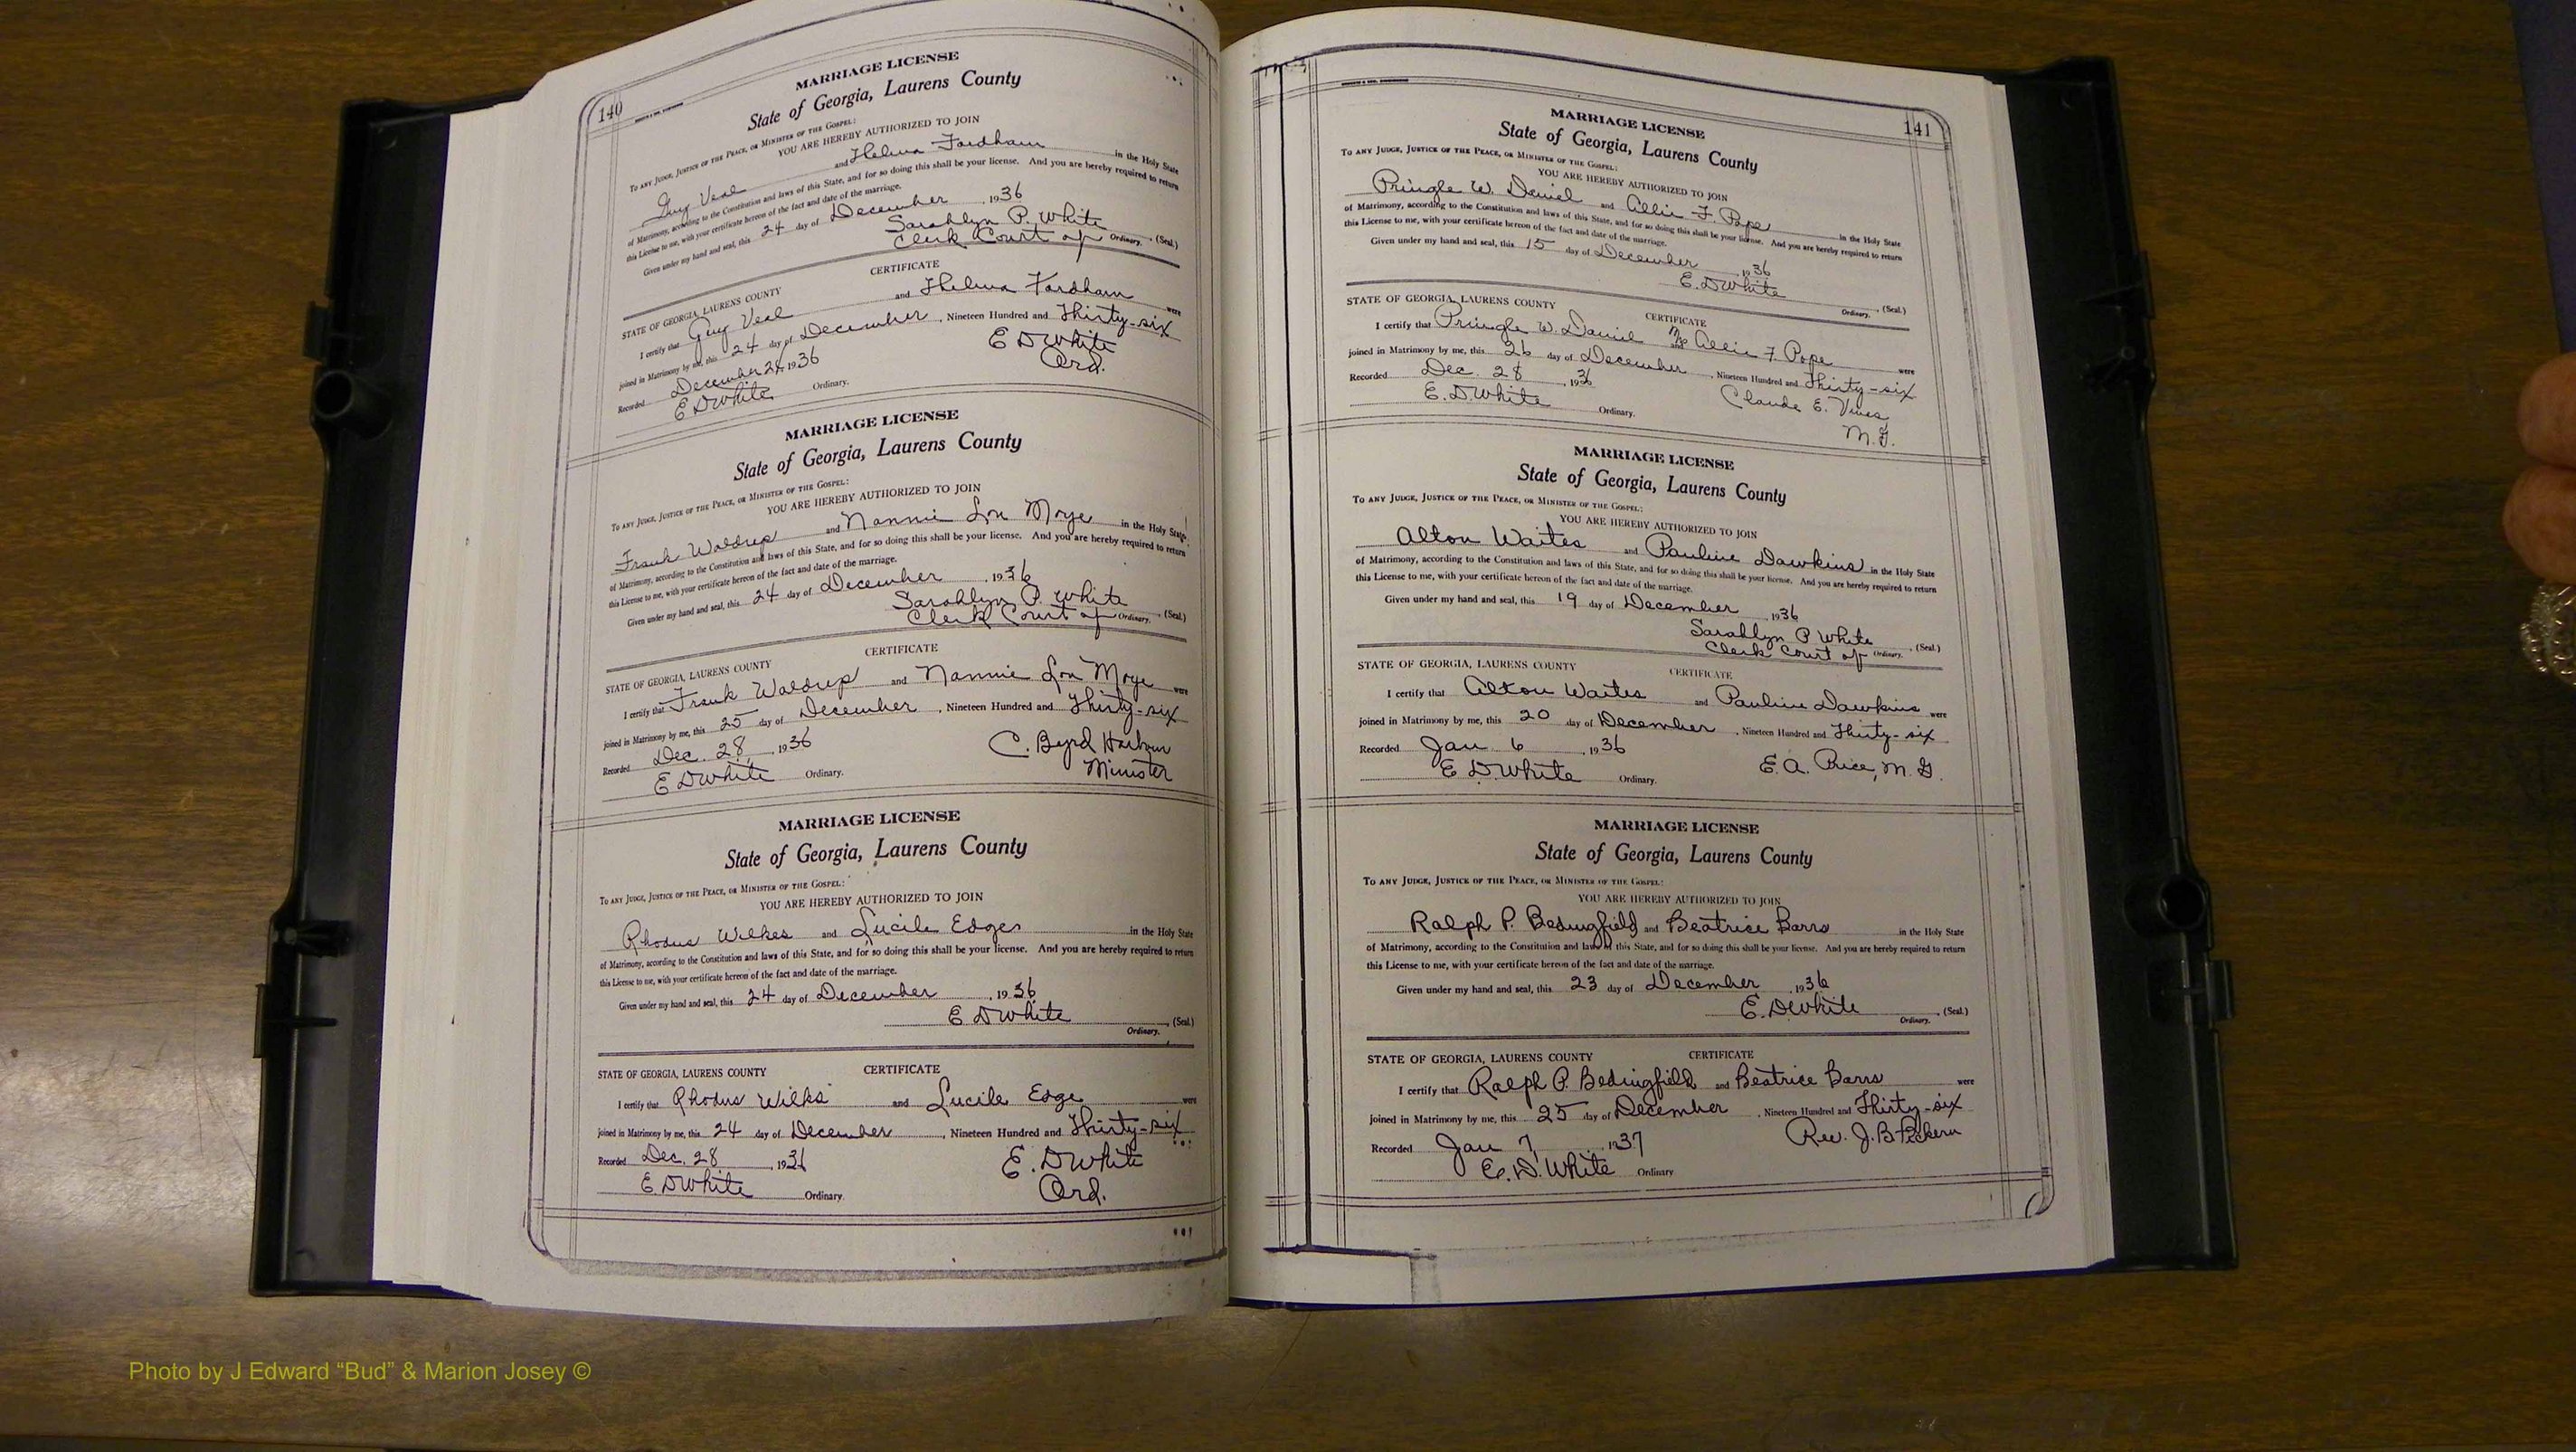 140
MARRIAGE LICENSE
State of Georgia, Laurens County
To any Judge, Justice of the Peace, or Minister of the Gospel:
YOU ARE HEREBY AUTHORIZED TO JOIN
Guy Veal and Thelma Fordham in the Holy State
of Matrimony, according to the Constitution and laws of this State, and for so doing this shall be your license. And you are hereby required to return
this License to me, with your certificate hereon of the fact and date of the marriage.
Given under my hand and seal, this 24 day of December, 1936
Sarahlyn P. White (Seal.)
Clerk Court of Ordinary.
CERTIFICATE
STATE OF GEORGIA, LAURENS COUNTY
I certify that Guy Veal and Thelma Fordham were
joined in Matrimony by me, this 24 day of December, Nineteen Hundred and Thirty-six
Recorded December 24, 1936 E D White
E D White Ordinary. Ord.
MARRIAGE LICENSE
State of Georgia, Laurens County
To any Judge, Justice of the Peace, or Minister of the Gospel:
YOU ARE HEREBY AUTHORIZED TO JOIN
Frank Waldrep and Nannie Lou Moye in the Holy State
of Matrimony, according to the Constitution and laws of this State, and for so doing this shall be your license. And you are hereby required to return
this License to me, with your certificate hereon of the fact and date of the marriage.
Given under my hand and seal, this 24 day of December, 1936
Sarahlyn P. White (Seal.)
Clerk Court of Ordinary.
CERTIFICATE
STATE OF GEORGIA, LAURENS COUNTY
I certify that Frank Waldrep and Nannie Lou Moye were
joined in Matrimony by me, this 25 day of December, Nineteen Hundred and Thirty-six
Recorded Dec. 28, 1936 C. Byrd Harbour
E D White Ordinary. Minister
MARRIAGE LICENSE
State of Georgia, Laurens County
To any Judge, Justice of the Peace, or Minister of the Gospel:
YOU ARE HEREBY AUTHORIZED TO JOIN
Rhodus Wilkes and Lucile Edges in the Holy State
of Matrimony, according to the Constitution and laws of this State, and for so doing this shall be your license. And you are hereby required to return
this License to me, with your certificate hereon of the fact and date of the marriage.
Given under my hand and seal, this 24 day of December, 1936
E D White (Seal.)
Ordinary.
STATE OF GEORGIA, LAURENS COUNTY CERTIFICATE
I certify that Rhodus Wilks and Lucile Edge were
joined in Matrimony by me, this 24 day of December, Nineteen Hundred and Thirty-six
Recorded Dec. 28, 1936 E. D White
E D White Ordinary. Ord.
141
MARRIAGE LICENSE
State of Georgia, Laurens County
To any Judge, Justice of the Peace, or Minister of the Gospel:
YOU ARE HEREBY AUTHORIZED TO JOIN
Pringle W. Daniel and Allie F. Pope in the Holy State
of Matrimony, according to the Constitution and laws of this State, and for so doing this shall be your license. And you are hereby required to return
this License to me, with your certificate hereon of the fact and date of the marriage.
Given under my hand and seal, this 15 day of December, 1936
E. D White (Seal.)
Ordinary.
STATE OF GEORGIA, LAURENS COUNTY CERTIFICATE
I certify that Pringle W. Daniel and Allie F. Pope were
joined in Matrimony by me, this 26 day of December, Nineteen Hundred and Thirty-six
Recorded Dec. 28, 1936 Claude E. Vines
E. D. White Ordinary. M. G.
MARRIAGE LICENSE
State of Georgia, Laurens County
To any Judge, Justice of the Peace, or Minister of the Gospel:
YOU ARE HEREBY AUTHORIZED TO JOIN
Alton Waites and Pauline Dawkins in the Holy State
of Matrimony, according to the Constitution and laws of this State, and for so doing this shall be your license. And you are hereby required to return
this License to me, with your certificate hereon of the fact and date of the marriage.
Given under my hand and seal, this 19 day of December, 1936
Sarahlyn P White (Seal.)
Clerk Court of Ordinary.
STATE OF GEORGIA, LAURENS COUNTY CERTIFICATE
I certify that Alton Waites and Pauline Dawkins were
joined in Matrimony by me, this 20 day of December, Nineteen Hundred and Thirty-six
Recorded Jan 6, 1936
E D. White Ordinary. E. A. Price, M. G.
MARRIAGE LICENSE
State of Georgia, Laurens County
To any Judge, Justice of the Peace, or Minister of the Gospel:
YOU ARE HEREBY AUTHORIZED TO JOIN
Ralph P. Bedingfield and Beatrice Barrs in the Holy State
of Matrimony, according to the Constitution and laws of this State, and for so doing this shall be your license. And you are hereby required to return
this License to me, with your certificate hereon of the fact and date of the marriage.
Given under my hand and seal, this 23 day of December, 1936
E. D White (Seal.)
Ordinary.
STATE OF GEORGIA, LAURENS COUNTY CERTIFICATE
I certify that Ralph P. Bedingfield and Beatrice Barrs were
joined in Matrimony by me, this 25 day of December, Nineteen Hundred and Thirty-six
Recorded Jan 7, 1937 Rev. J. B
E. D. White Ordinary
Photo by J Edward “Bud” & Marion Josey ©